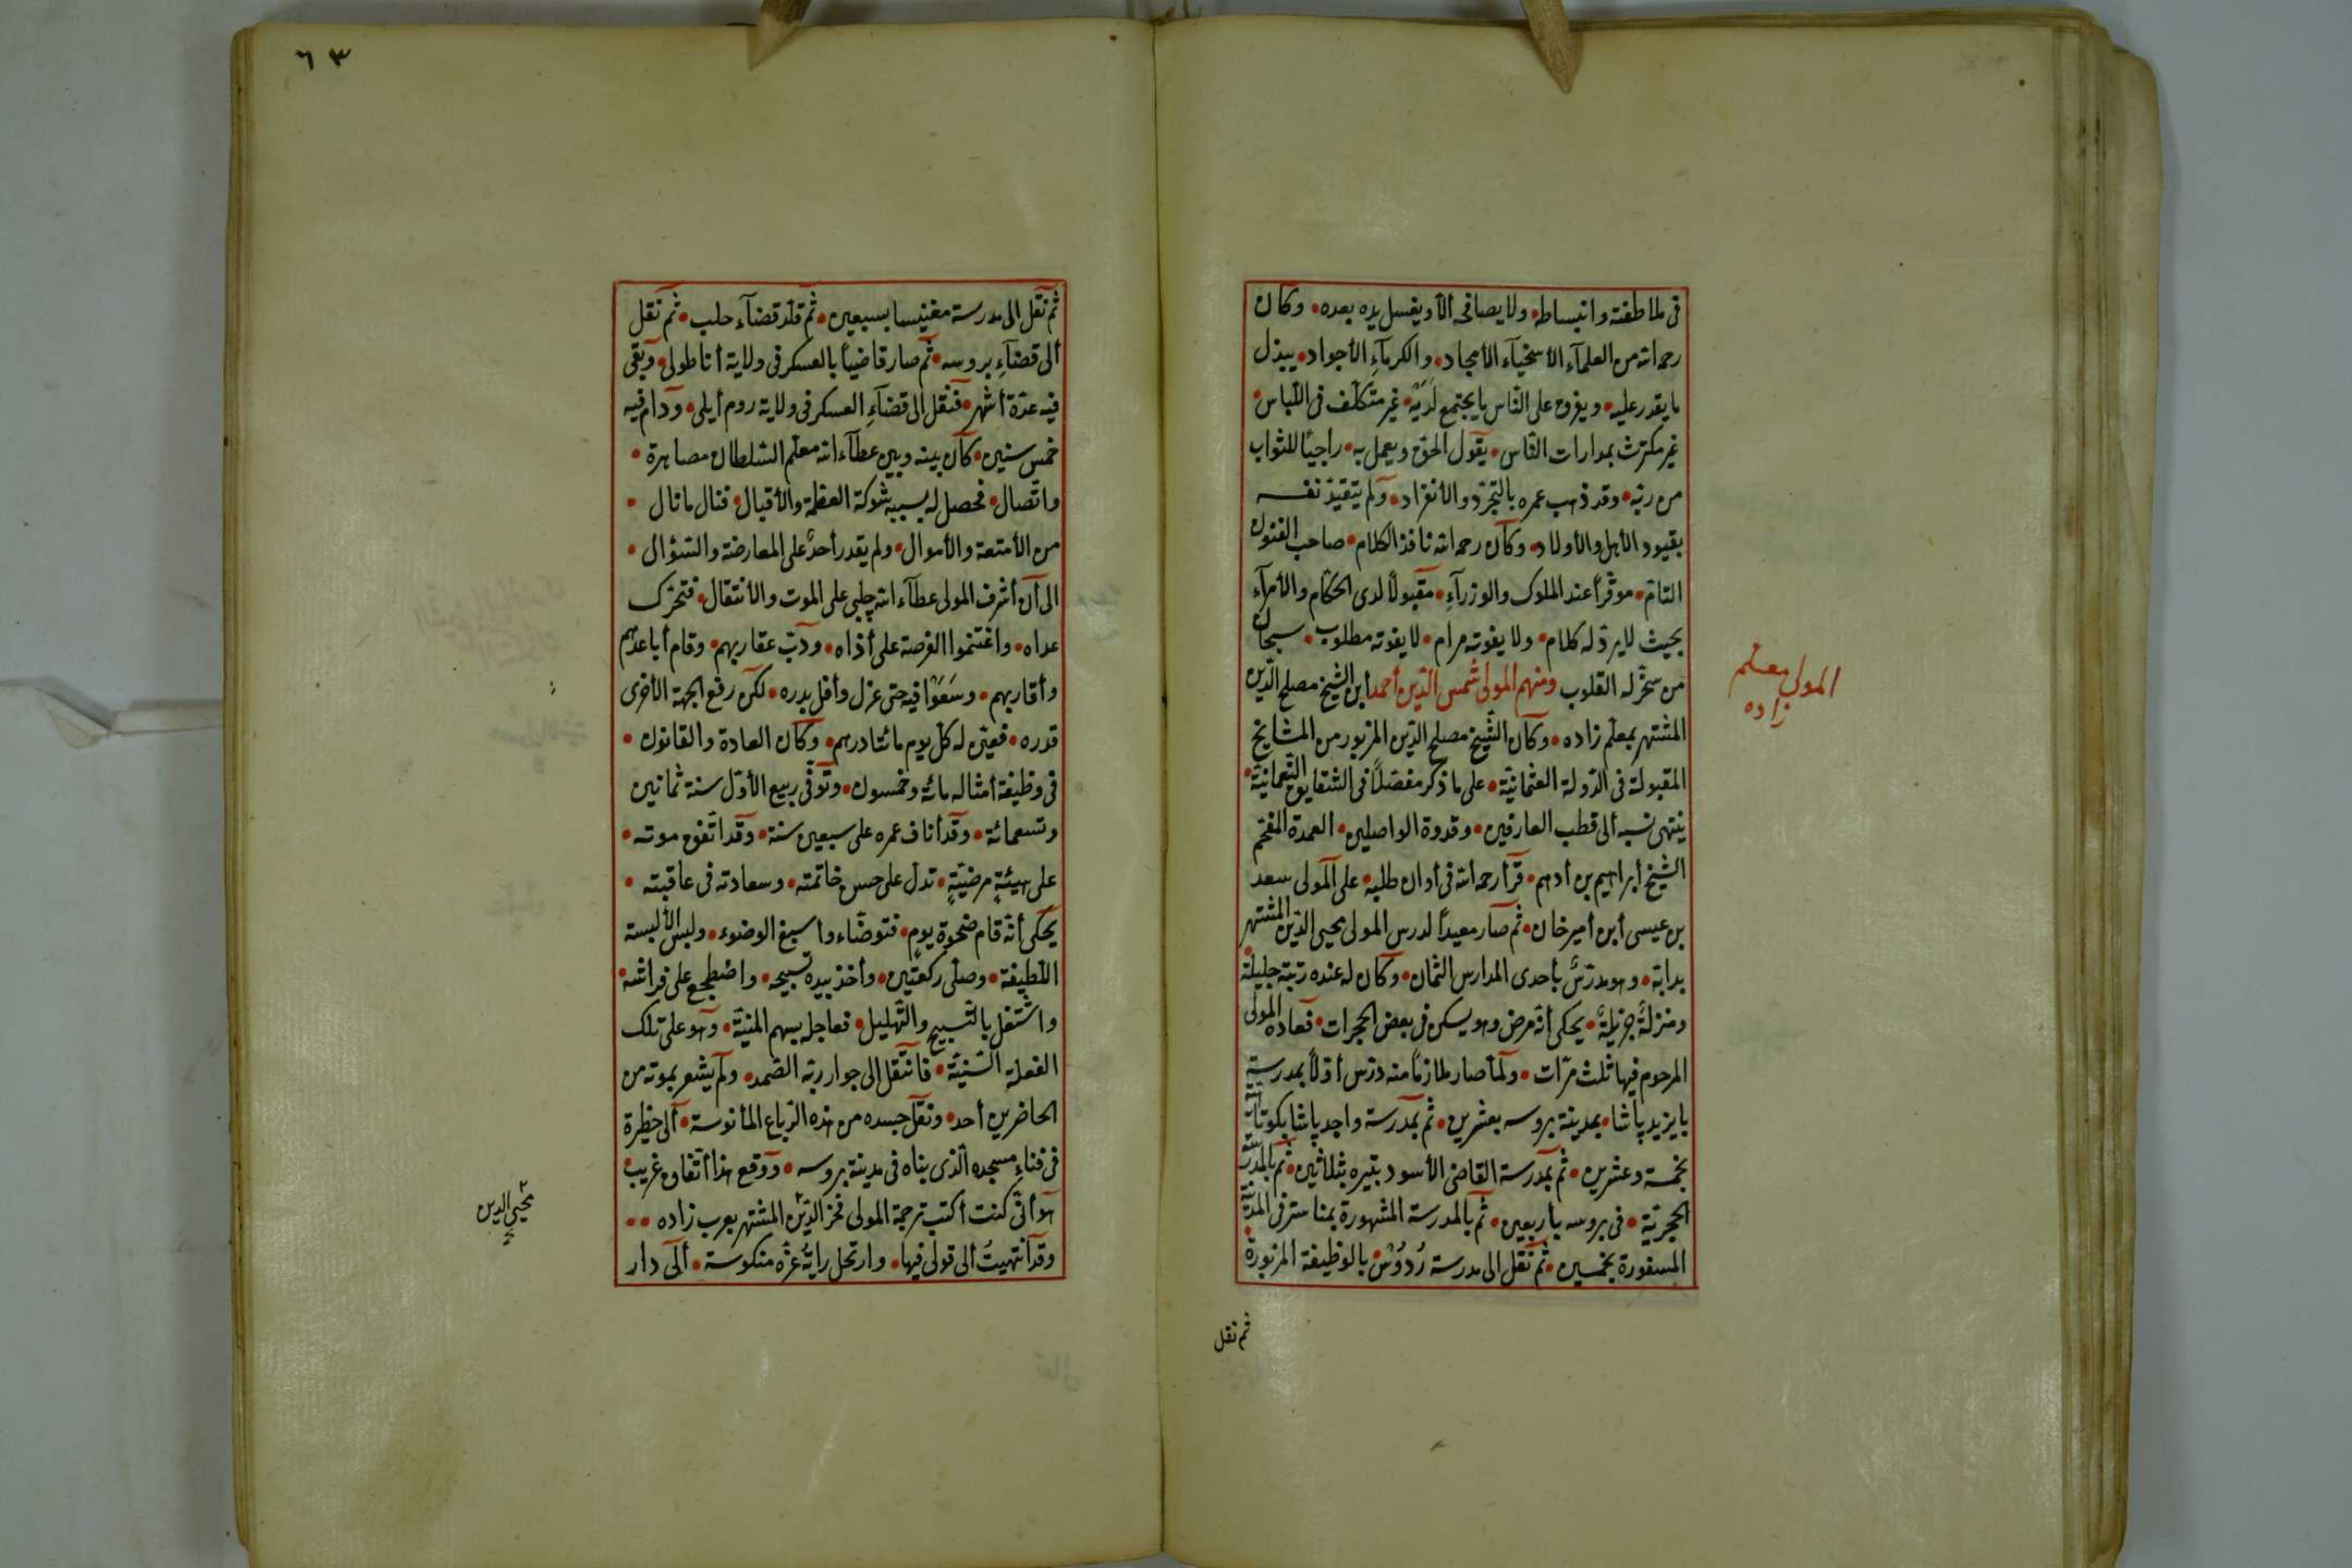 فى ملاطفته وانبساطه • ولا يصافحه ألا ويغسل يده بعده • وكان
رحمه الله من العلمآء الأسخيآء الأمجاد • والكرمآءِ الأجواد • يبذل
ما يقدر عليه • ويفرق على النّاس ما يجتمع لَدَيْه • غير متكلّف فى اللّباس •
غير مكترث بمدارات النّاس • يقول الحقّ ويعمل به • راجيًا للثواب
من ربّه • وقد ذهب عمره بالتّجرّد والأنفراد • ولم يتقيّد نفسه
بقيود الأهل والأولاد • وكان رحمه الله نافذ الكلام • صاحب القبول
التّامّ • موقّراً عند الملوك والوزرآءِ • مقبولاً لدى الحكّام والأمرآء
بحيث لا يردّ له كلام • ولا يفوته مرام • لا يفوته مطلوب • سبحان
من سخّر له القلوب ومنهم المولى شمس الدّين أحمد أبن الشّيخ مصلح الدّين
المشتهر بمعلّم زاده • وكان الشّيخ مصلح الدّين المزبور من المشايخ
المقبولة فى الدّولة العثمانيّة • على ما ذكر مفصّلاً فى الشّقايق النّعمانيّة •
ينتهى نسبه ألى قطب العارفين • وقدوة الواصلين • العمدة المفخّم
الشّيخ أبراهيم بن أدهم • قرأ رحمه الله فى أوان طلبه • على المولى سعد
بن عيسى أبن أمير خان • ثم صار معيداً لدرس المولى محيى الدّين المشتهر
بدابة • وهو مدرّسٌ بأحدى المدارس الثمان • وكان له عنده رتبة جليلة •
ومنزلةٌ جزيلةٌ • يحكى أنّه مرض وهو يسكن فى بعض الحجرات • فعاده المولى
المرحوم فيها ثلث مرّات • ولمّا صار ملازماً منه درّس أوّلاً بمدرسة
بايزيد پاشا • بمدينة بروسه بعشرين • ثم بمدرسة واجد پاشا بكوتاهية
بخمسة وعشرين • ثم بمدرسة القاضى الأسود بتيره بثلاثين • ثم بالمدرسة
الحجريّة • فى بروسه بأربعين • ثم بالمدرسة المشهورة بمناستر فى المدينة
المسفورة بخمسين • ثم نقل الى مدرسة رُدوُسْ • بالوظيفة المزبورة
ثم نقل
المولى معلّم
زاده
٦٣
ثم نقل الى مدرسة مغنيسا بسبعين • ثم قلّد قضآء حلب • ثم نقل
ألى قضآءِ بروسه • ثم صار قاضياً بالعسكر فى ولاية أناطولى • وبقى
فيه عدّة أشهر • فنقل الى قضآءِ العسكر فى ولاية روم أيلى • ودام فيه
خمس سنين • كان بينه وبين عطآء الله معلّم السّلطان مصاهرة •
واتّصال • فحصل له بسببه شوكة العظمة والأقبال • فنال ما نال •
من الأمتعة والأموال • ولم يقدر أحدٌ على المعارضة والسّؤال •
الى أن أشرف المولى عطآء الله چلبى على الموت والأنتقال • فتحرّك
عداه • واغتنموا الفرصة على أذاه • ودبّ عقاربهم • وقام أباعدهم
وأقاربهم • وسَعَوْا فيه حتى عزل وأفل بدره • لكن رفع الجهة الأخرى
قدره • فعيّن له كلّ يوم مائتا درهم • وكان العادة والقانون •
فى وظيفة أمثاله مائة وخمسون • وتوفّى ربيع الأوّل سنة ثمانين
وتسعمائة • وقد أناف عمره على سبعين سنة • وقد اتّفق موته •
على هيئةٍ مرضيّةٍ • تدلّ على حسن خاتمته • وسعادته فى عاقبته •
يحكى أنّه قام ضحوة يوم • فتوضّاء وأسبغ الوضوء • ولبس الألبسة
اللّطيفة • وصلّى ركعتين • وأخذ بيده تسبيحه • واضطجع على فراشه •
واشتغل بالتّسبيح والتّهليل • فعاجله سهم المنيّة • وهو على تلك
الفعلة السّنيّة • فانتقل إلى جوار ربّه الصّمد • ولم يشعر بموته من
الحاضرين أحد • ونقل جسده من هذه الرّباع المأنوسة • ألى حظيرة
فى فناءِ مسجده الّذى بناه فى مدينة بروسه • ووقع هذا أتّفاق غريب •
هو أنّى كنت أكتب ترجمة المولى فخر الدّين المشتهر بعرب زاده ••
وقد أنتهيتُ ألى قولى فيها • وارتحل رايةُ عزّه منكوسة • ألى دار
محيي الدين